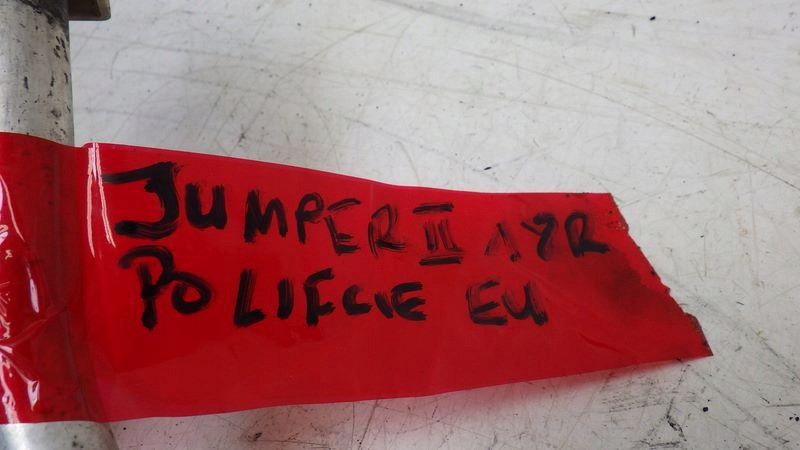 JUMPER II 18R
PO LIFCIE EU